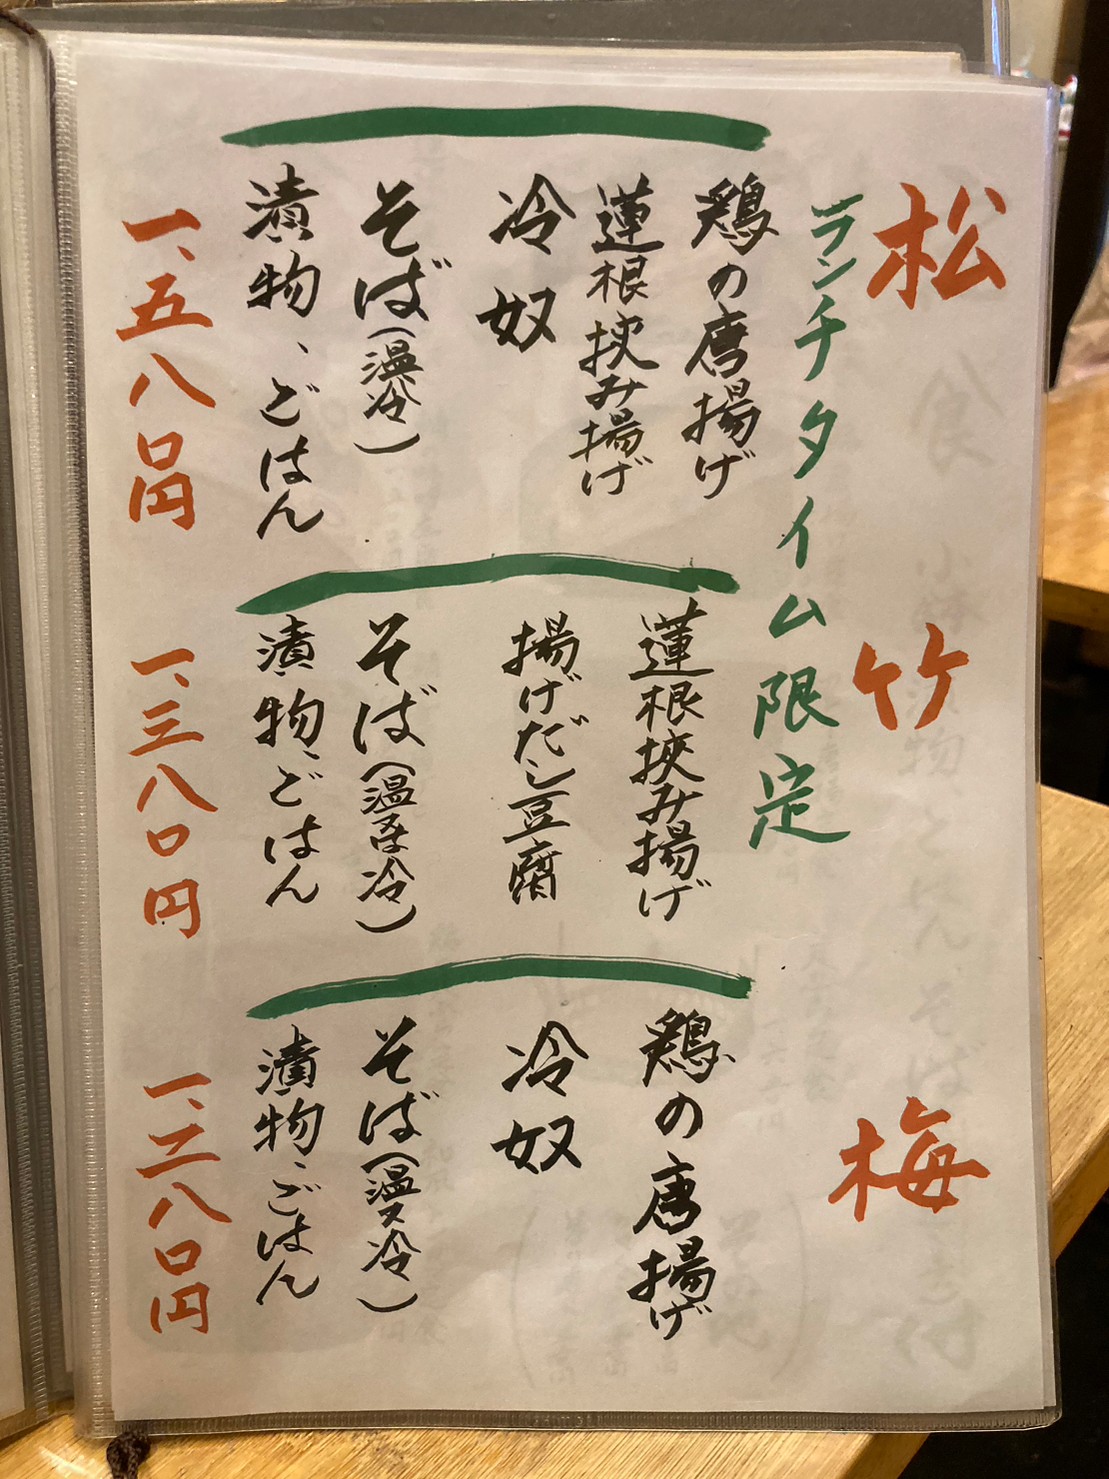 松
ランチタイム限定
鶏の唐揚げ
蓮根挟み揚げ
冷奴
そば(温冷)
漬物、ごはん
一、五八〇円
竹
蓮根挟み揚げ
揚げだし豆腐
そば(温又は冷)
漬物、ごはん
一、三八〇円
梅
鶏の唐揚げ
冷奴
そば(温又冷)
漬物、ごはん
一、二八〇円